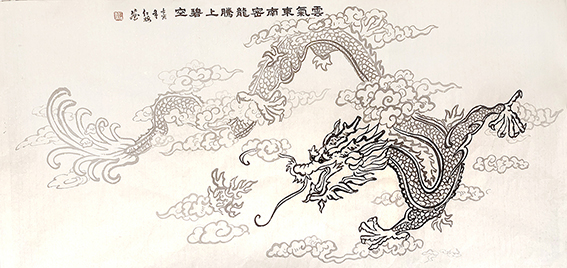 雲氣東南密龍騰上碧空